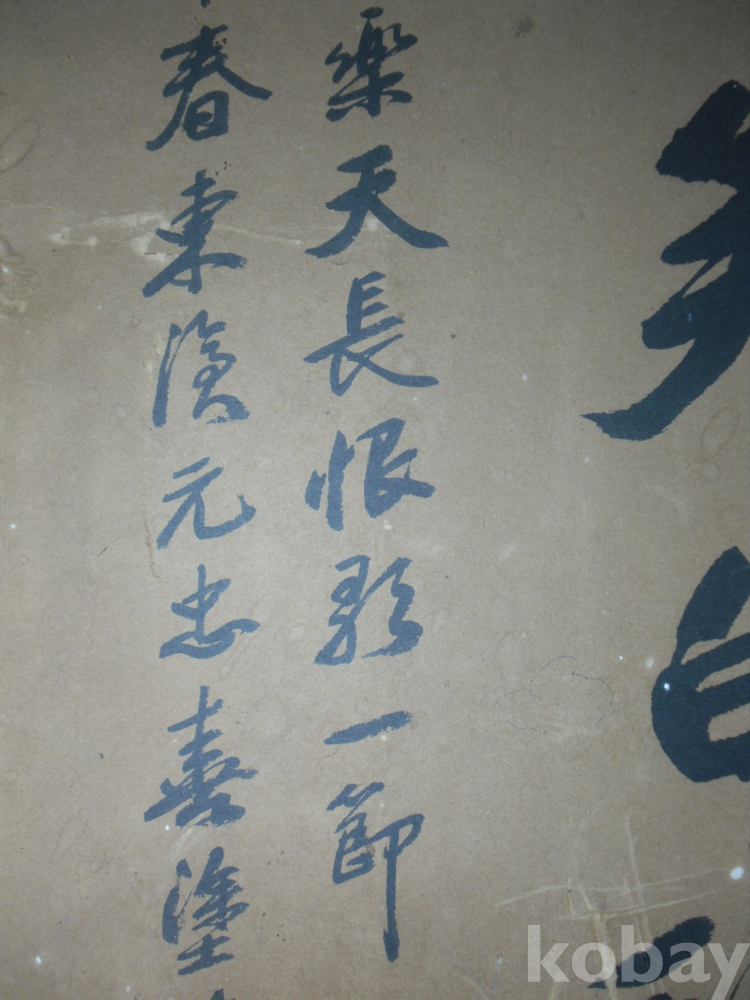 樂天長恨歌一節
春東濱元忠喜塗
kobay